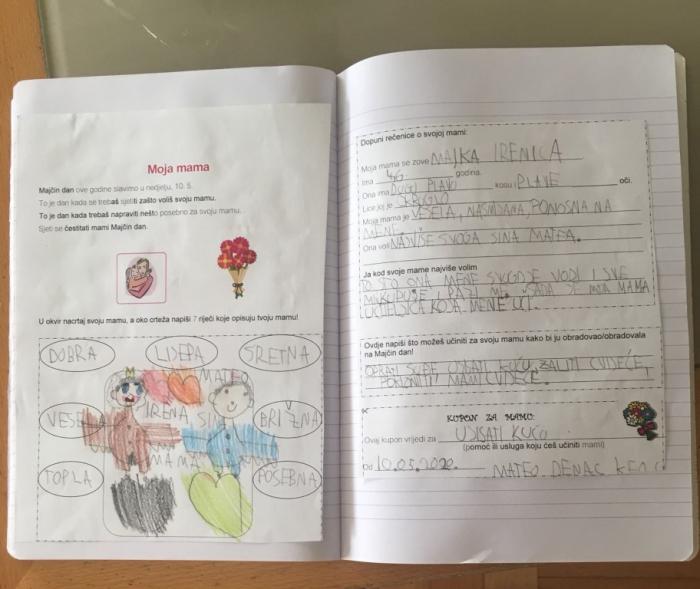 Moja mama
Majčin dan ove godine slavimo u nedjelju, 10. 5.
To je dan kada se trebaš sjetiti zašto voliš svoju mamu.
To je dan kada trebaš napraviti nešto posebno za svoju mamu.
Sjeti se čestitati mami Majčin dan.
U okvir nacrtaj svoju mamu, a oko crteža napiši 7 riječi koje opisuju tvoju mamu!
DOBRA
LIJEPA
SRETNA
MATEO
VESELA
IRENA
SIN
BRIŽNA
MAMA
TOPLA
POSEBNA
Dopuni rečenice o svojoj mami:
Moja mama se zove MAJKA IRENICA
Ima 46 godina.
Ona ima DUGU PLAVO kosu i PLAVE oči.
Lice joj je OKRUGLO
Moja mama je VESELA, NASMIJANA, PONOSNA NA
MENE.
Ona voli NAJVIŠE SVOGA SINA MATEA.
Ja kod svoje mame najviše volim
TO ŠTO ONA MENE SVUGDJE VODI I SVE
MI KUPUJE I PAZI ME. SADA JE MOJA MAMA
UČITELJICA KOJA MENE UČI.
Ovdje napiši što možeš učiniti za svoju mamu kako bi ju obradovao/obradovala
na Majčin dan!
OPRATI SUĐE, USISATI KUĆU, ZALITI CVIJEĆE,
POKLONITI MAMI CVIJEĆE.
KUPON ZA MAMU:
Ovaj kupon vrijedi za USISATI KUĆU
(pomoć ili usluga koju ćeš učiniti mami)
Od 10.05.2020. MATEO DENAC